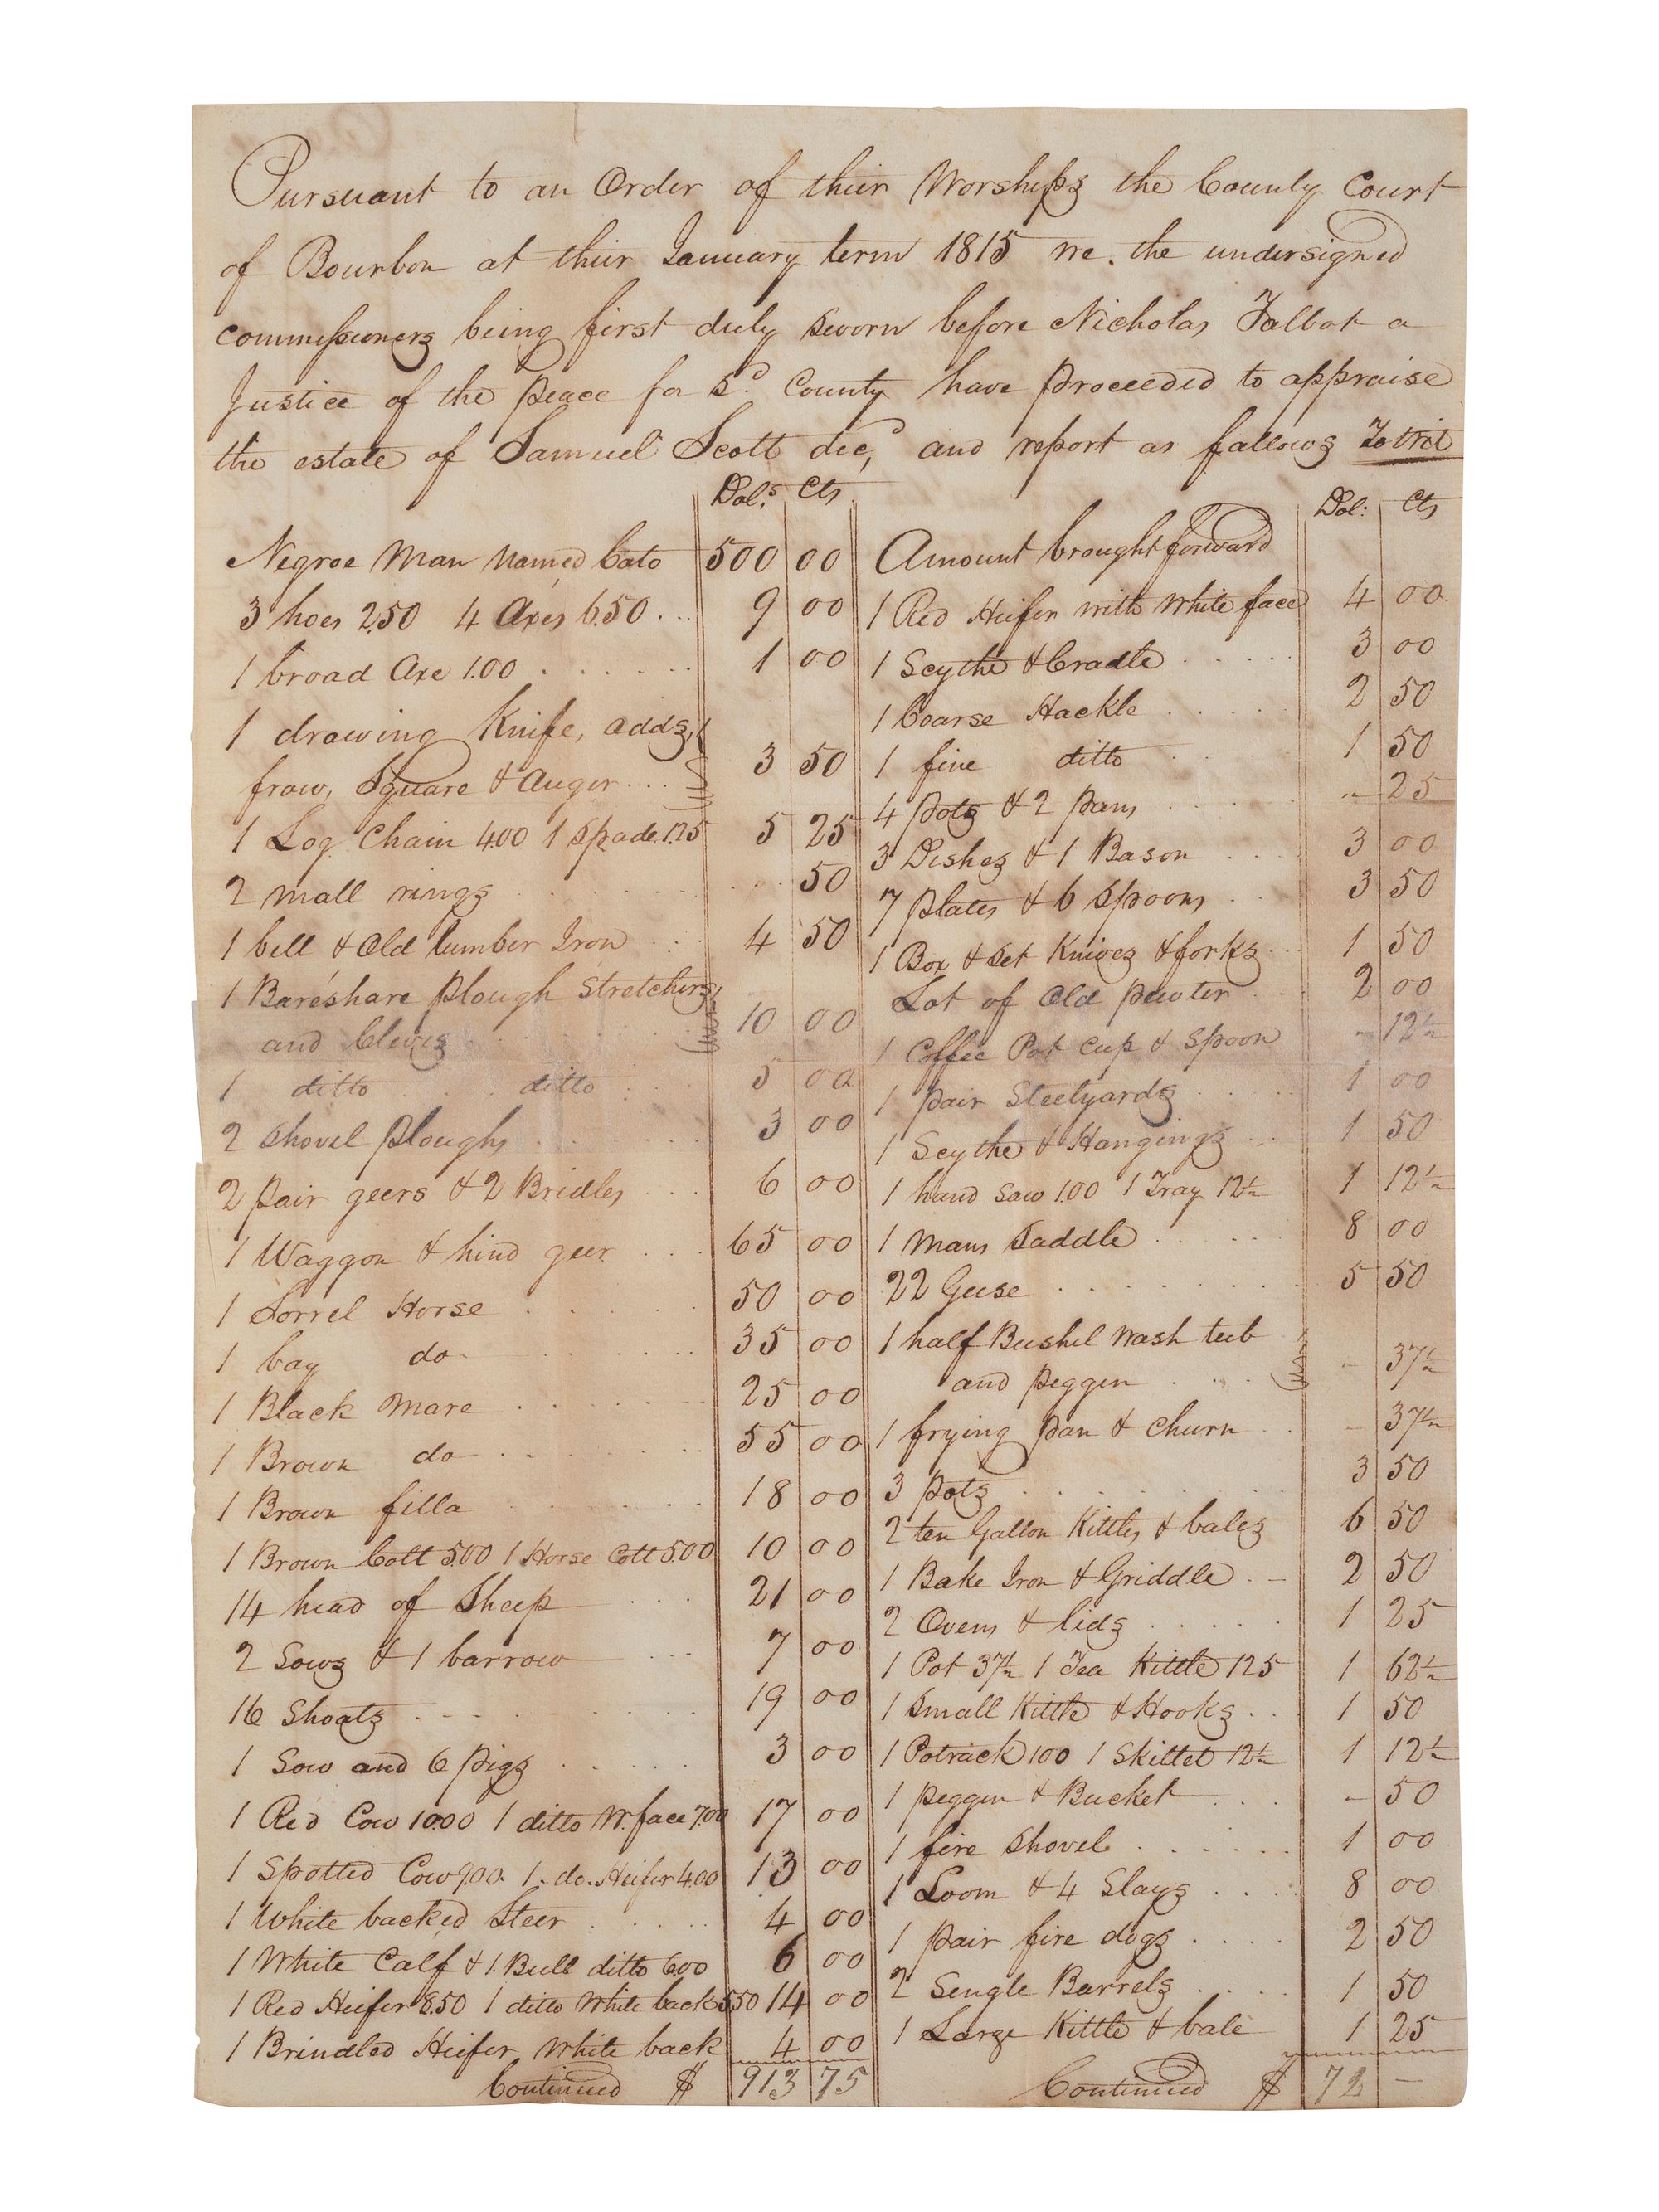 Pursuant to an Order of thier Worships the County Court
of Bourbon at thier January term 1815 we. the undersigned
commissioners being first duly sworn before Nicholas Talbot a
Justice of the peace for sd. County have proceeded to appraise
the estate of Samuel Scott decd, and report as fallows Towit
Dols. Cts
Negroe Man Named Cato 500 00
3 hoes 2.50 4 Axes 6.50 ... 9 00
1 broad Axe 1.00 ....... 1 00
1 drawing Knife, adds,
frow, Square & Auger ... 3 50
1 Log Chain 4.00 1 Spade. 1.25 5 25
2 mall rings ........ 50
1 bell & Old lumber Iron ... 4 50
1 Bareshare Plough Stretchers
and Clevis ........ 10 00
1 ditto .... ditto ... 5 00
2 Shovel Ploughs ....... 3 00
2 pair geers & 2 Bridles ... 6 00
1 Waggon & hind geer ... 65 00
1 Sorrel Horse ...... 50 00
1 bay do ....... 35 00
1 Black Mare ....... 25 00
1 Brown do ....... 55 00
1 Brown filla ....... 18 00
1 Brown Colt 5.00 1 Horse Colt 5.00 10 00
14 head of Sheep ... 21 00
2 Sows & 1 barrow ... 7 00
16 Shoats ........ 19 00
1 Sow and 6 pigs ..... 3 00
1 Red Cow 10.00 1 ditto W. face 7.00 17 00
1 Spotted Cow 9.00. 1. do. Heifer 4.00 13 00
1 White backed Steer ..... 4 00
1 White Calf & 1. Bull ditto 6.00 6 00
1 Red Heifer 8.50 1 ditto White back 5.50 14 00
1 Brindled Heifer White back 4 00
Continued $ 913 75
Dol: Cts
Amount brought forward
1 Red Heifer with White face 4 00
1 Scythe & Cradle ..... 3 00
1 Coarse Hackle ..... 2 50
1 fine ditto .... 1 50
4 pots & 2 pans ..... - 25
3 Dishes & 1 Bason .... 3 00
7 plates & 6 Spoons ... 3 50
1 Box & Set Knives & forks .. 1 50
Lot of Old pewter ... 2 00
1 Coffee Pot Cup & Spoon - 12½
1 pair Steelyards ..... 1 00
1 Scythe & Hangings ... 1 50
1 hand Saw 1.00 1 Tray 12½ 1 12½
1 Mans Saddle ..... 8 00
22 Geese ......... 5 50
1 half Bushel Wash tub
and peggin .... - 37½
1 frying pan & Churn .. - 37½
3 pots ......... 3 50
2 ten Gallon Kittles & bales 6 50
1 Bake Iron & Griddle . - 2 50
2 Ovens & lids ...... 1 25
1 Pot 37½ 1 Tea Kittle 125 1 62½
1 Small Kittle & Hooks .. 1 50
1 Potrack 100 1 Skillet 12½ 1 12½
1 peggin & Bucket ... - 50
1 fire Shovel ...... 1 00
1 Loom & 4 Slays .... 8 00
1 pair fire dogs .... 2 50
2 Single Barrels .... 1 50
1 Large Kittle & bale 1 25
Continued $ 72 -